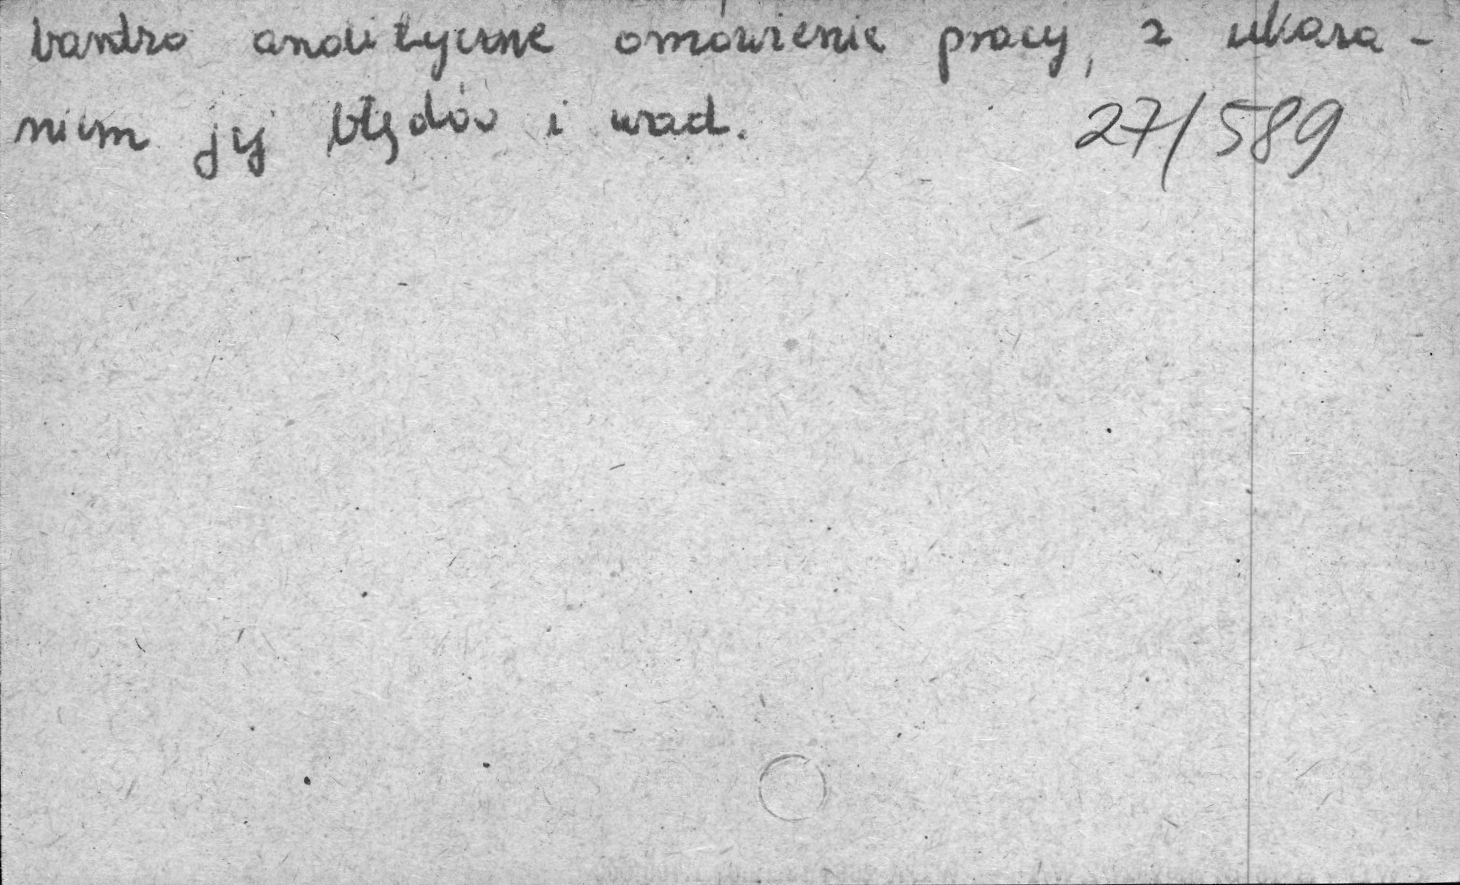 bardzo analityczne omówienie pracy, z ukaza-
niem jej błędów i wad. 27/589